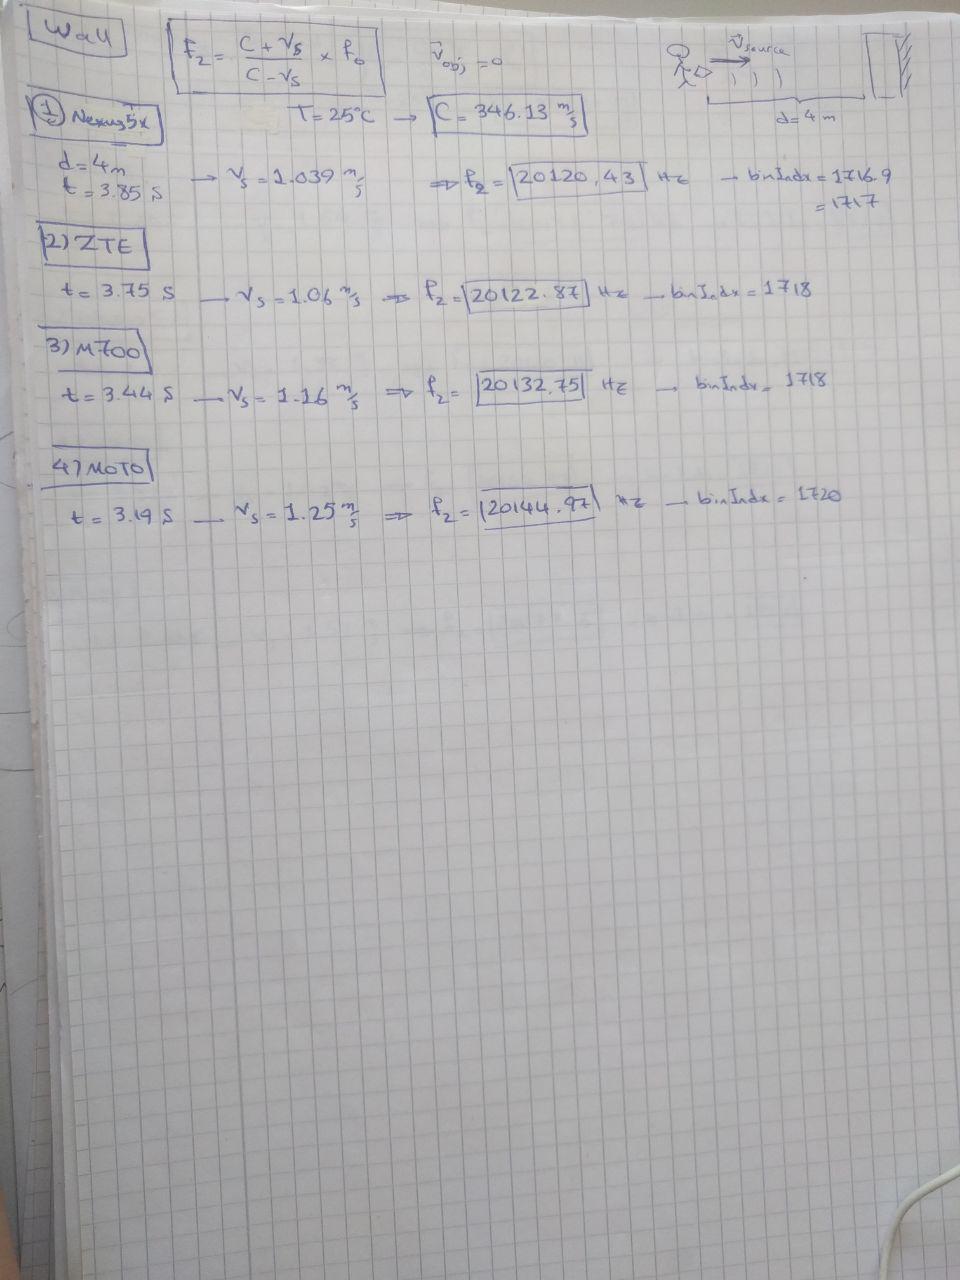 Wall
F₂ = (C + Vs)/(C - Vs) × f₀
V⃗obj = 0
V⃗source
d = 4 m
T = 25°C → C = 346.13 m/s
① Nexus 5x
d = 4m
t = 3.85 s → Vs = 1.039 m/s ⇒ f₂ = 20120.43 Hz → binIndx = 1716.9
= 1717
2) ZTE
t = 3.75 s — Vs = 1.06 m/s ⇒ f₂ = 20122.87 Hz — binIndx = 1718
3) M700
t = 3.44 s — Vs = 1.16 m/s ⇒ f₂ = 20132.75 Hz → binIndx = 1718
4) MOTO
t = 3.19 s — Vs = 1.25 m/s ⇒ f₂ = 20144.97 Hz → binIndx = 1720